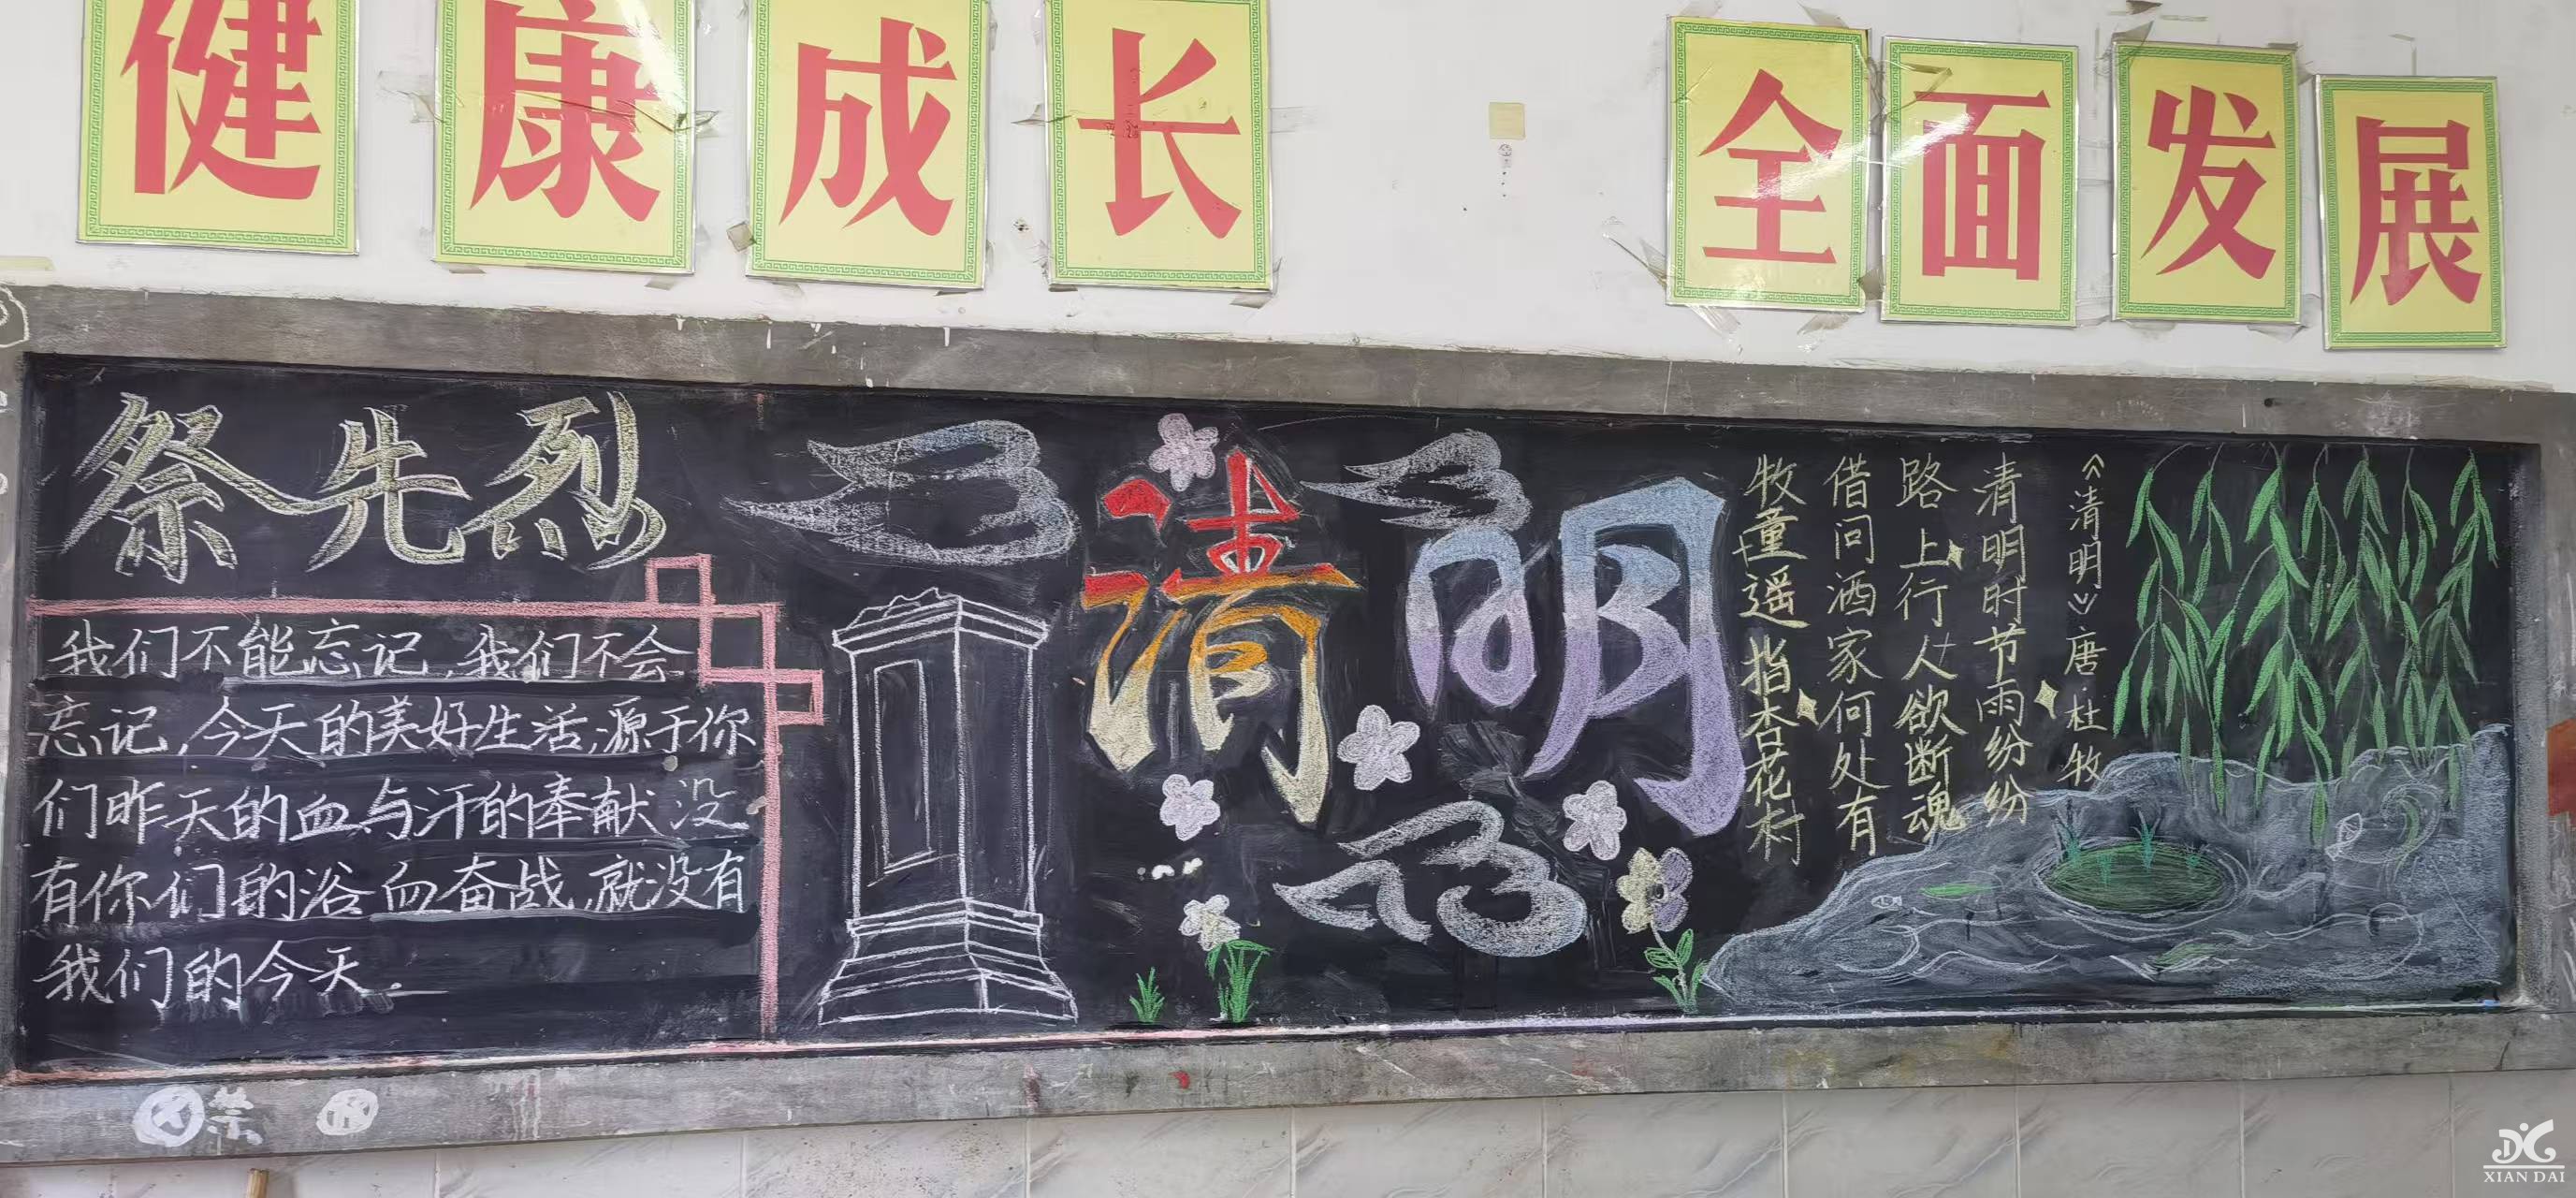 健康成长
全面发展
祭先烈
我们不能忘记,我们不会
忘记,今天的美好生活,源于你
们昨天的血与汗的奉献没
有你们的浴血奋战,就没有
我们的今天.
清明
《清明》唐·杜牧
清明时节雨纷纷
路上行人欲断魂
借问酒家何处有
牧童遥指杏花村
XIAN DAI